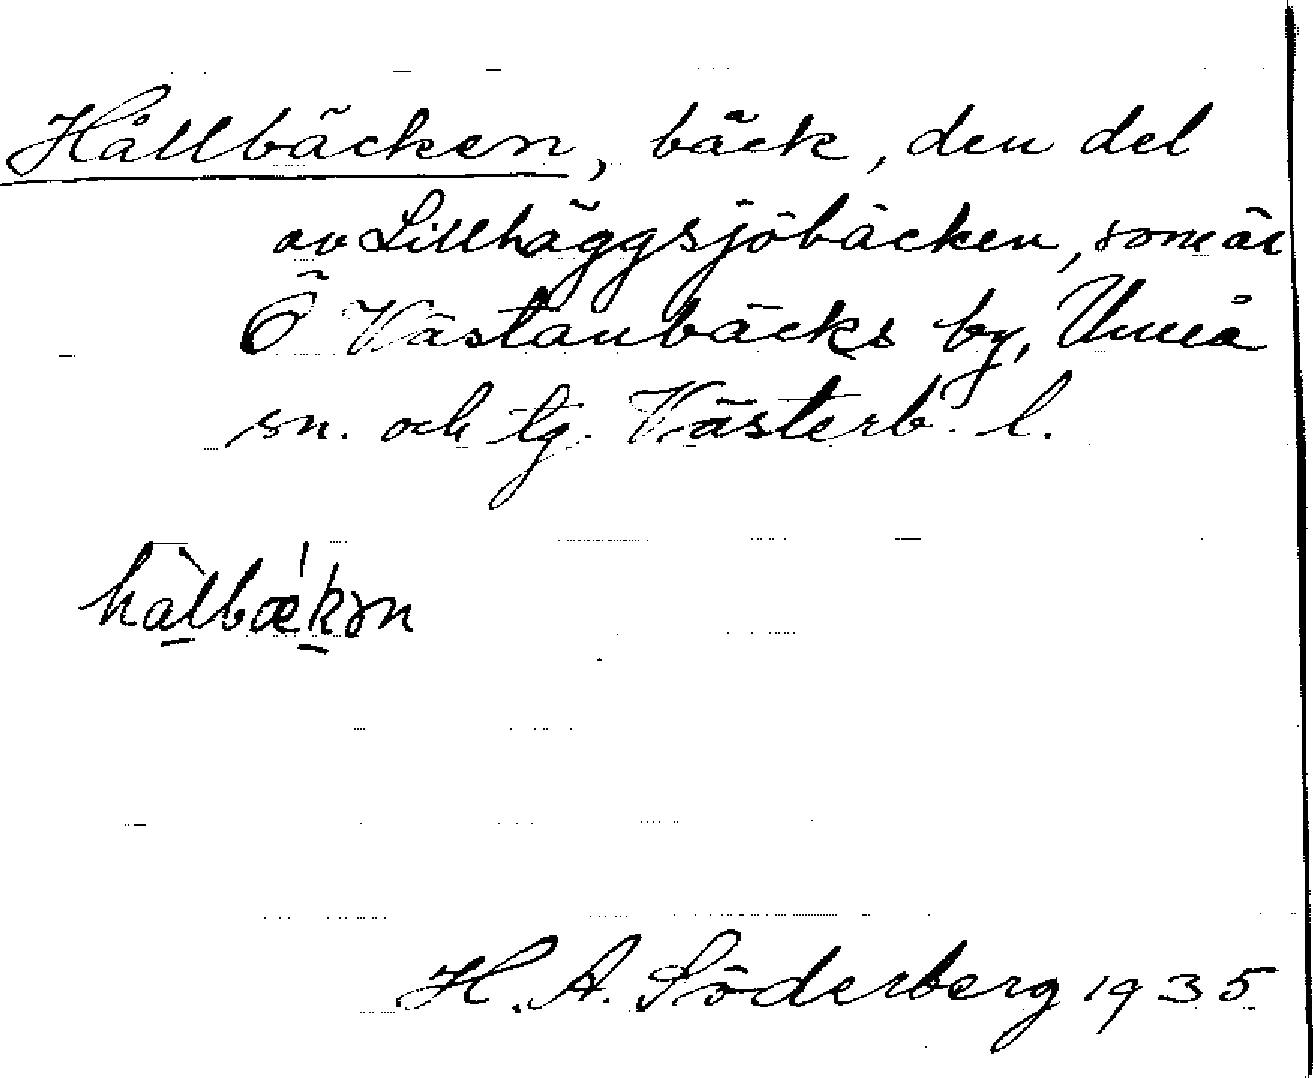 Hållbäcken, bäck, den del
av Lillhäggsjöbäcken, som är
Ö Västanbäcks by, Umeå
sn. och tg. Västerb. l.
hålbækən
H. A. Söderberg 1935